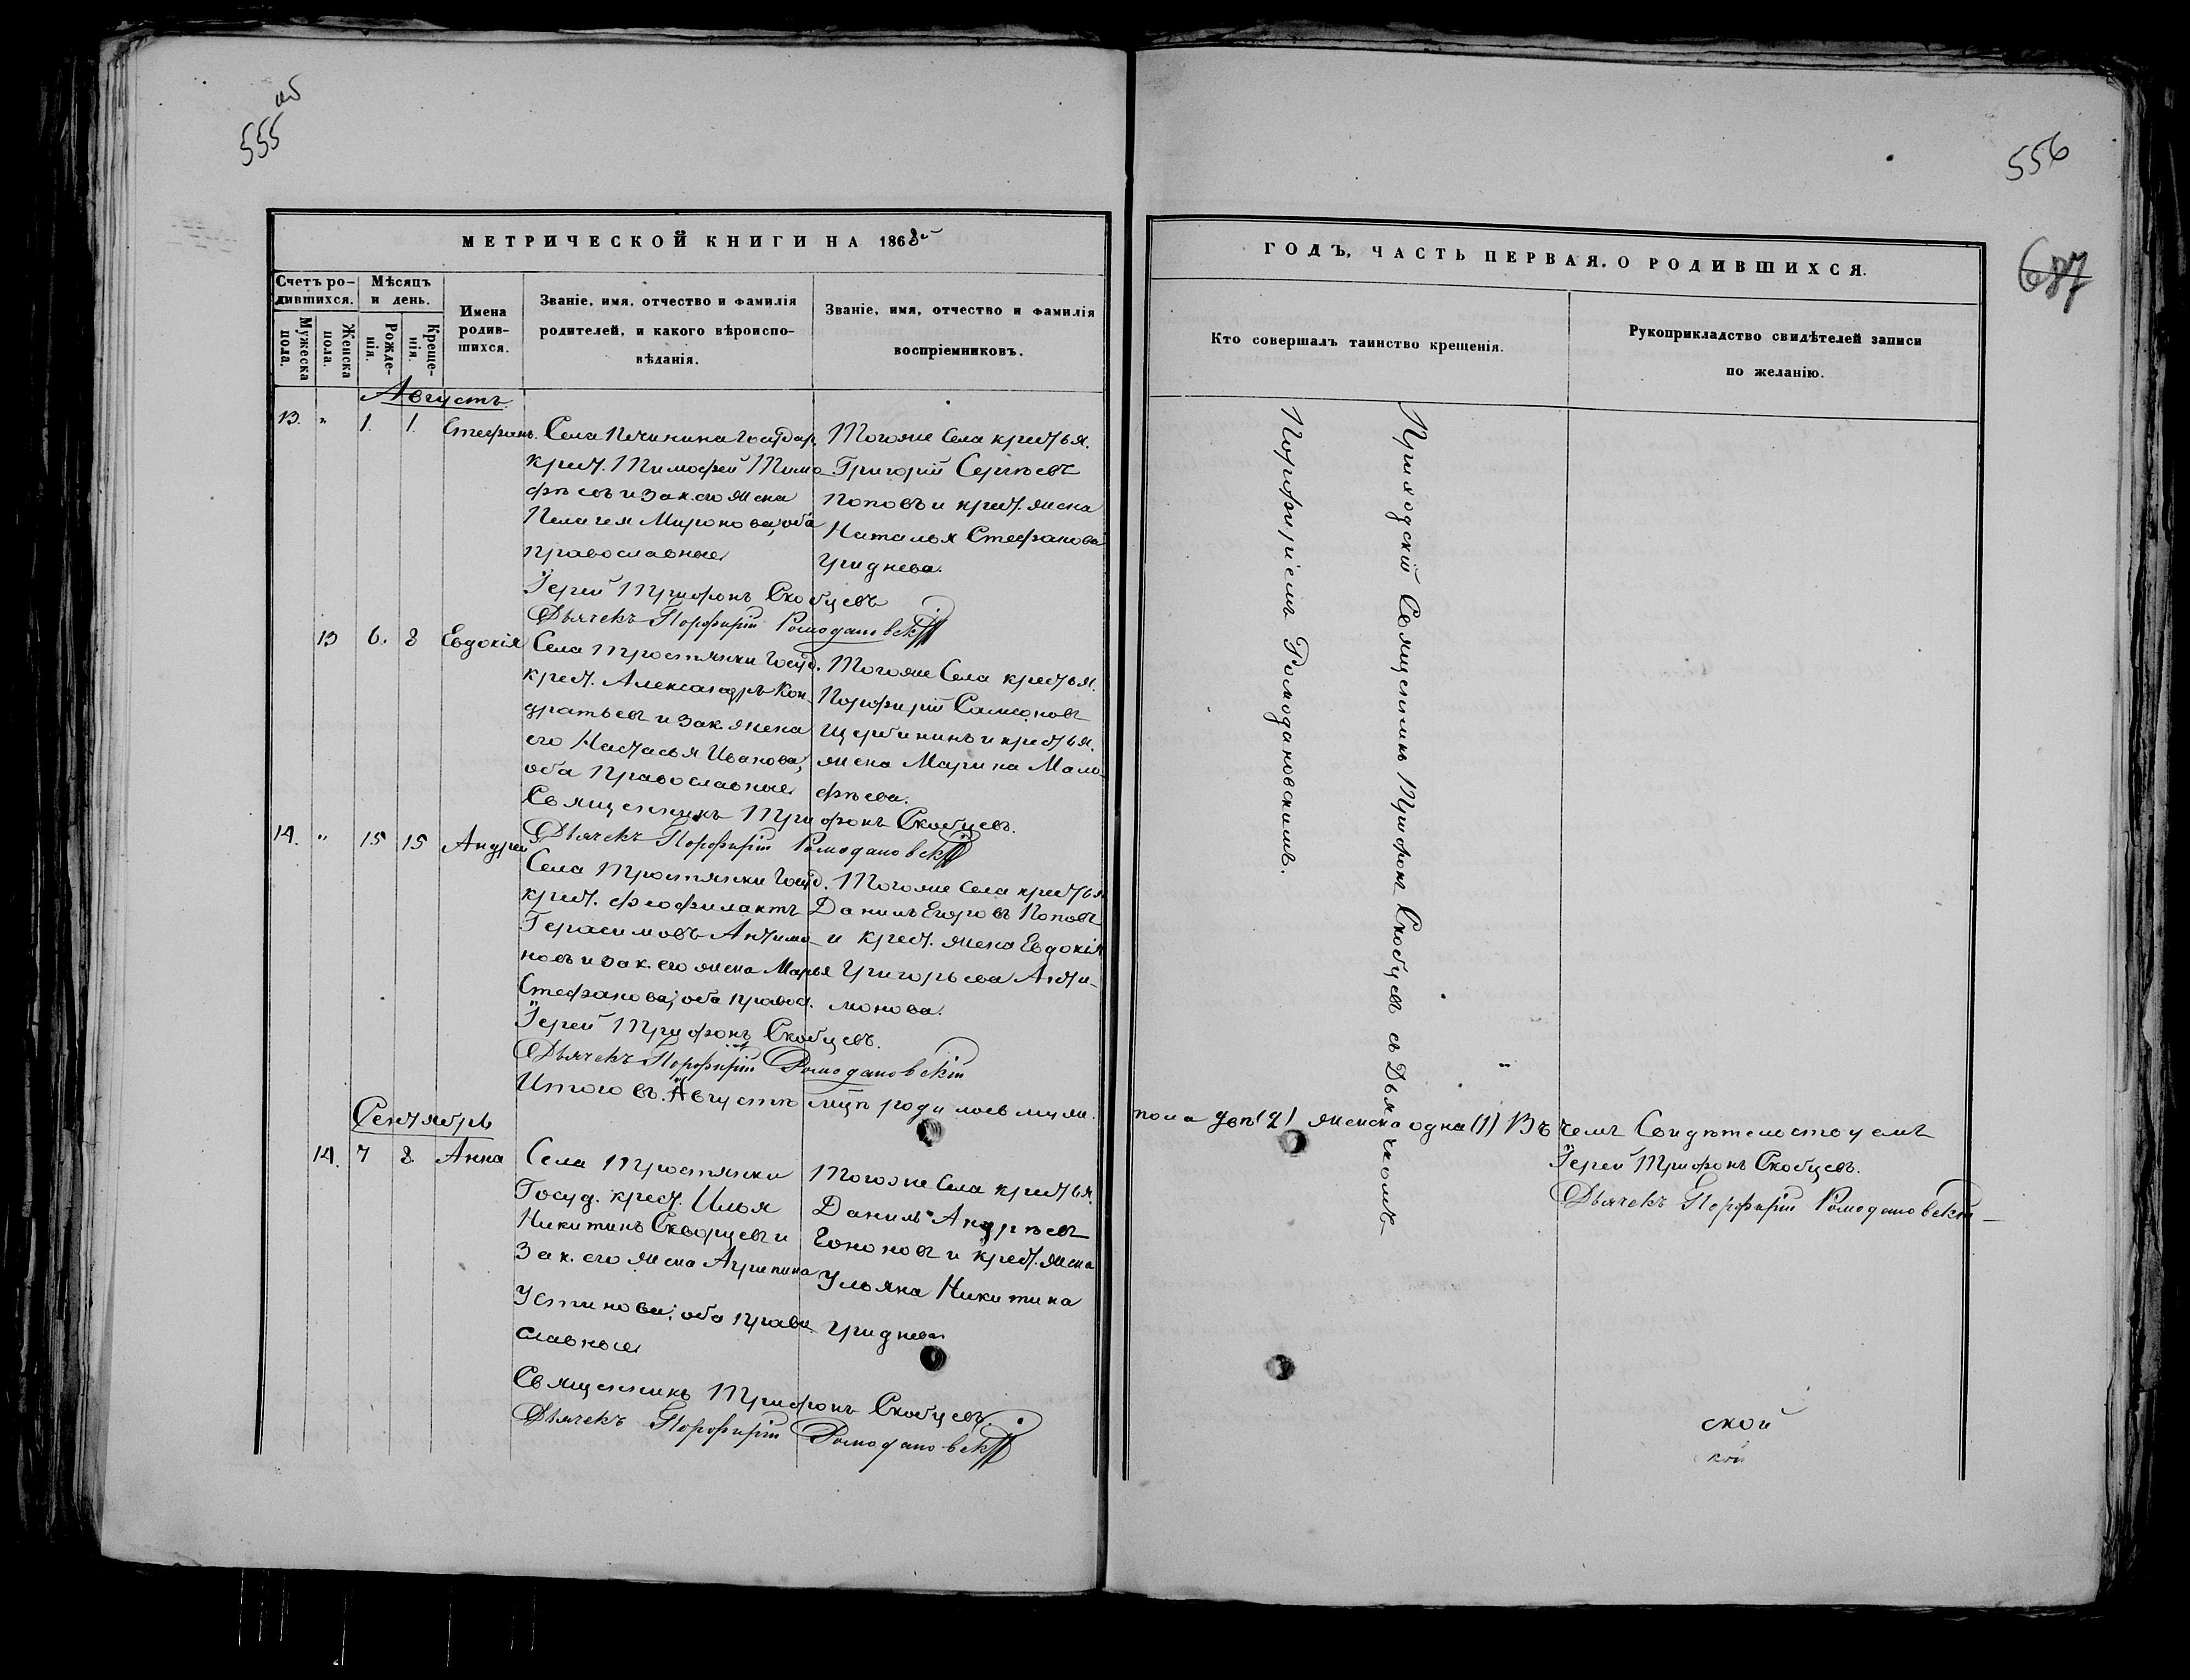 555 об
МЕТРИЧЕСКОЙ КНИГИ НА 1868й
Счетъ ро-
дившихся.
Мужеска
пола.
Женска
пола.
Мѣсяцъ
и день.
Рожде-
нія.
Креще-
нія.
Имена
родив-
шихся.
Званіе, имя, отчество и фамилія
родителей, и какого вѣроиспо-
вѣданія.
Званіе, имя, отчество и фамилія
воспріемниковъ.
Августъ
13. " 1. 1. Стефанъ.
Села Печинина Государ.
крест. Тимофей Тимо
фѣевъ и зак. его жена
Пелагея Миронова, оба
православные
Тогоже Села крестья.
Григорій Сергѣевъ
Поповъ и крест. жена
Наталья Стефанова
Гриднева.
Іерей Трифонъ Скобцевъ
Дьячекъ Порфирій Ромодановскій
13 6. 8 Евдокія
Села Тростянки Госуд.
крест. Александръ Кон-
дратьевъ и зак. жена
его Настасья Иванова,
оба православные
Тогоже Села крестья.
Порфирій Самсоновъ
Щербининъ и крестья.
жена Марина Мало-
фѣева.
Священникъ Трифонъ Скобцевъ.
Дьячекъ Порфирій Ромодановскій
14. " 15 15 Андрей
Села Тростянки Госуд.
крест. Феофилактъ
Герасимовъ Антимо-
новъ и зак. его жена Марья
Стефанова; оба правос.
Тогоже Села крестья
Данилъ Егоровъ Поповъ
и крест. жена Евдокія
Григорьева Анти-
монова.
Іерей Трифонъ Скобцевъ.
Дьячекъ Порфирій Ромодановскій
Итого въ Августѣ мцѣ родилось муж.
Сентябрь
14. 7 8 Анна
Села Тростянки
Госуд. крест. Илья
Никитинъ Скворцевъ и
зак. его жена Агрипина
Устинова; оба право
славные
Тогоже Села крестья.
Данилъ Андрѣевъ
и крест. жена
Ульяна Никитина
Гриднева
Священникъ Трифонъ Скобцевъ.
Дьячекъ Порфирій Ромодановскій
556
687
ГОДЪ, ЧАСТЬ ПЕРВАЯ, О РОДИВШИХСЯ.
Кто совершалъ таинство крещенія.
Рукоприкладство свидѣтелей записи
по желанію.
Приходскій Священникъ Трифонъ Скобцевъ съ Дьячкомъ
Порфиріемъ Ромодановскимъ.
пола двѣ (2) женска одна (1) Въ чемъ Свидѣтельствуемъ
Іерей Трифонъ Скобцевъ.
Дьячекъ Порфирій Ромодановскій
ской
кой